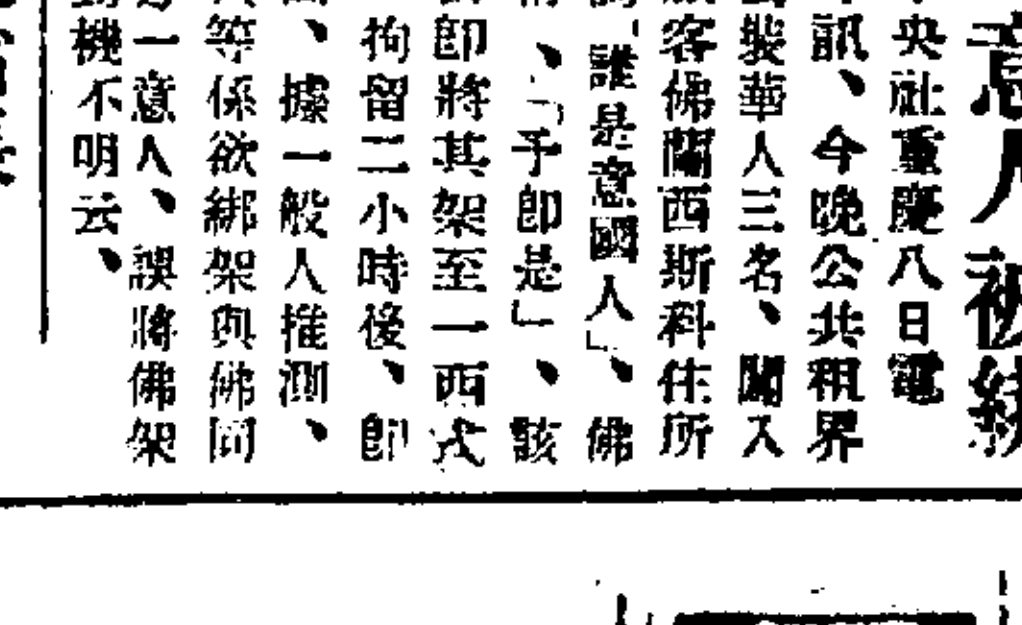 意人被綁
中央社重慶八日電
訊、今晚公共租界
裝華人三名、闖入
客佛蘭西斯科住所
「誰是意國人」、佛
、「予即是」、該
即將其架至一西式
拘留二小時後、即
、據一般人推測、
等係欲綁架與佛同
一意人、誤將佛架
機不明云、